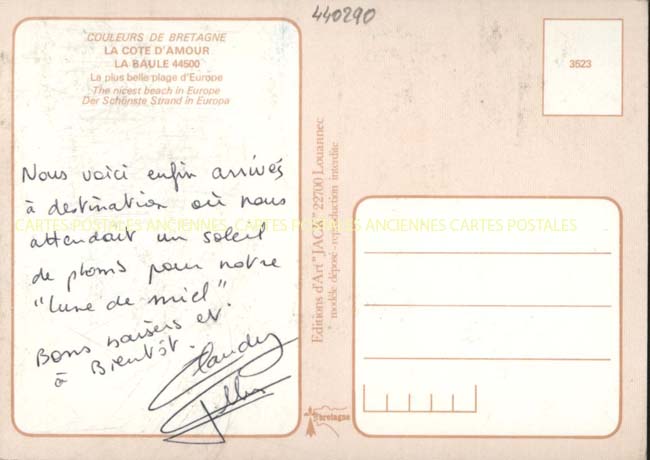 440290
COULEURS DE BRETAGNE
LA COTE D'AMOUR
LA BAULE 44500
La plus belle plage d'Europe
The nicest beach in Europe
Der Schönste Strand in Europa
3523
Nous voici enfin arrivés
à destination où nous
attendait un soleil
de plomb pour notre
"lune de miel".
Bons baisers et
à Bientôt.
CARTES POSTALES ANCIENNES CARTES POSTALES ANCIENNES CARTES POSTALES
Editions d'Art "JACK" 22700 Louannec
modèle déposé - reproduction interdite
bretagne